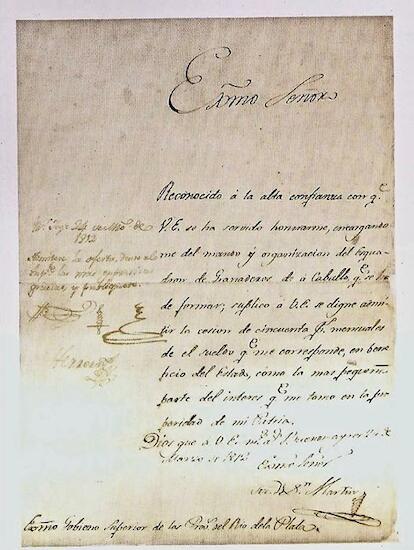 Exmo Señor
Reconocido á la alta confianza con qe
V.E. se ha servido honrarme, encargando
me del mando y organizacion del Esqua-
dron de Granaderos de á Caballo, qe se ha
de formar; suplico á V.E. se digne admi-
tir la cesion de cincuenta ps. mensuales
de el sueldo qe me corresponde, en bene
ficio del Estado, como la mas pequeña
parte del interes qe me tomo en la pros
peridad de mi Patria.
Dios gue á V.E. ms. as. Buenos ayres
Marzo de 1812
Exmo Señor
Jose de Sn. Martin
24 de Mzo de
1812
Admitese la oferta, dense al
las mas expresivas
gracias y publiquese
Herrera
Exmo Gobierno Superior de las Provs. del Rio de la Plata.